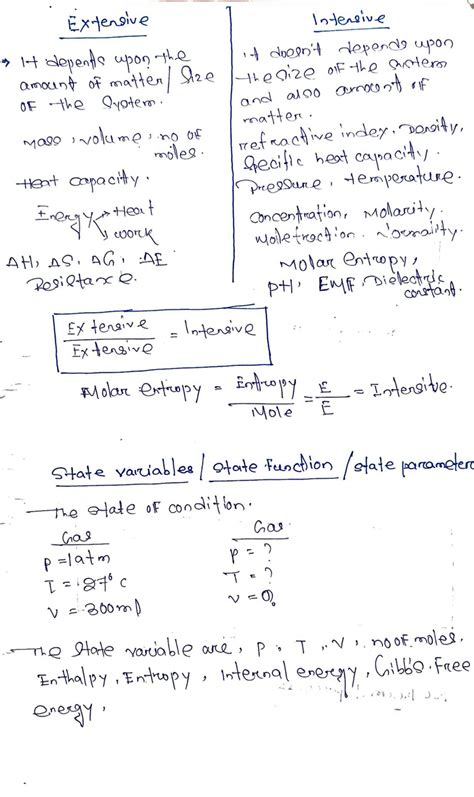 Extensive
→ It depends upon the
amount of matter/ Size
OF the System.
Mass, volume, no of
moles.
Heat capacity.
Energy → Heat
→ work
ΔH, ΔS, ΔG, ΔE
Resistance.
Intensive
it doesn't depends upon
the size of the system
and also amount of
matter.
refractive index, Density,
Specific heat capacity.
Pressure, temperature.
Concentration, Molarity,
Mole fraction. Normality.
Molar entropy,
PH, EMF, Dielectric
constant.
Extensive / Extensive = Intensive
Molar entropy = Entropy / Mole = E / E = Intensive.
State variables / State function / state parameters
— The state of condition.
Gas
P = 1atm
T = 27° C
V = 300ml
Gas
P = ?
T = ?
V = ?
— The State variable are, P, T, V, no of moles.
Enthalpy, Entropy, Internal energy, Gibb's. Free
energy,